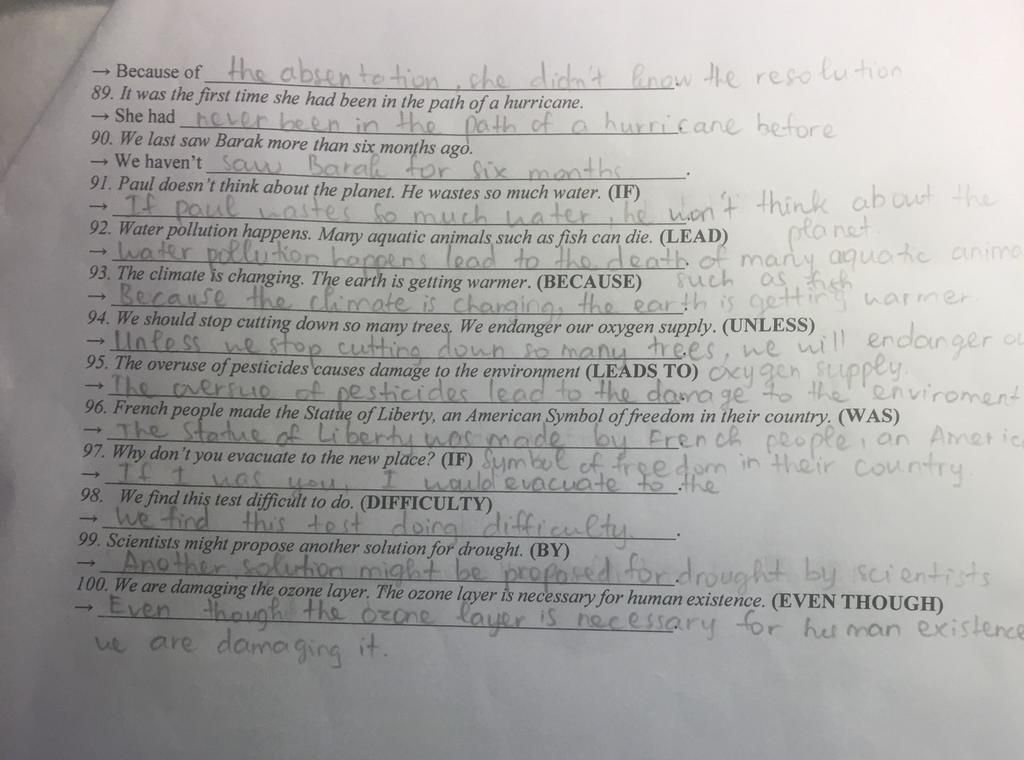 → Because of the absentation, she didn't know the resolution
89. It was the first time she had been in the path of a hurricane.
→ She had never been in the path of a hurricane before
90. We last saw Barak more than six months ago.
→ We haven't saw Barak for six months.
91. Paul doesn't think about the planet. He wastes so much water. (IF)
→ If paul wastes so much water, he won't think about the
planet.
92. Water pollution happens. Many aquatic animals such as fish can die. (LEAD)
→ water pollution happens lead to the death of many aquatic anima
such as fish
93. The climate is changing. The earth is getting warmer. (BECAUSE)
→ Because the climate is changing, the earth is getting warmer.
94. We should stop cutting down so many trees. We endanger our oxygen supply. (UNLESS)
→ Unless we stop cutting down so many trees, we will endanger ou
oxygen supply.
95. The overuse of pesticides causes damage to the environment (LEADS TO)
→ The oversue of pesticides lead to the damage to the enviroment
96. French people made the Statue of Liberty, an American Symbol of freedom in their country. (WAS)
→ The Statue of Liberty was made by French people, an Americ
symbol of freedom in their country.
97. Why don't you evacuate to the new place? (IF)
→ If I was you, I would evacuate to the
98. We find this test difficult to do. (DIFFICULTY)
→ We find this test doing difficulty.
99. Scientists might propose another solution for drought. (BY)
→ Another solution might be proposed for drought by scientists
100. We are damaging the ozone layer. The ozone layer is necessary for human existence. (EVEN THOUGH)
→ Even though the ozone layer is necessary for human existence
we are damaging it.